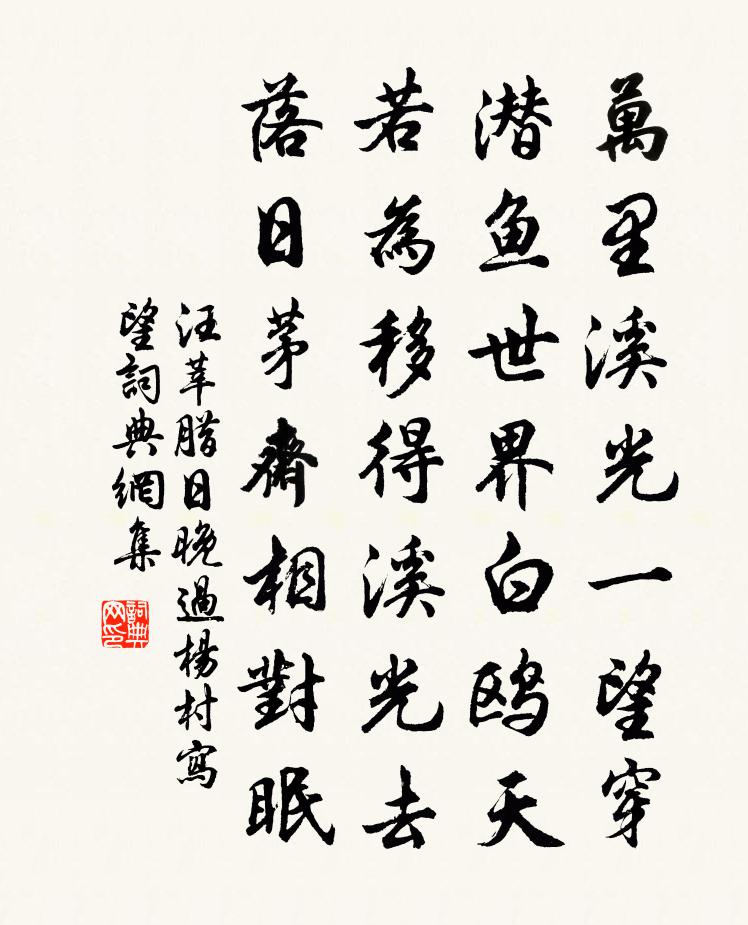 萬里溪光一望穿
潜鱼世界白鸥天
若為移得溪光去
落日茅齋相對眠
汪莘腊日晚過楊村寫
望詞典網集
詞典
网印